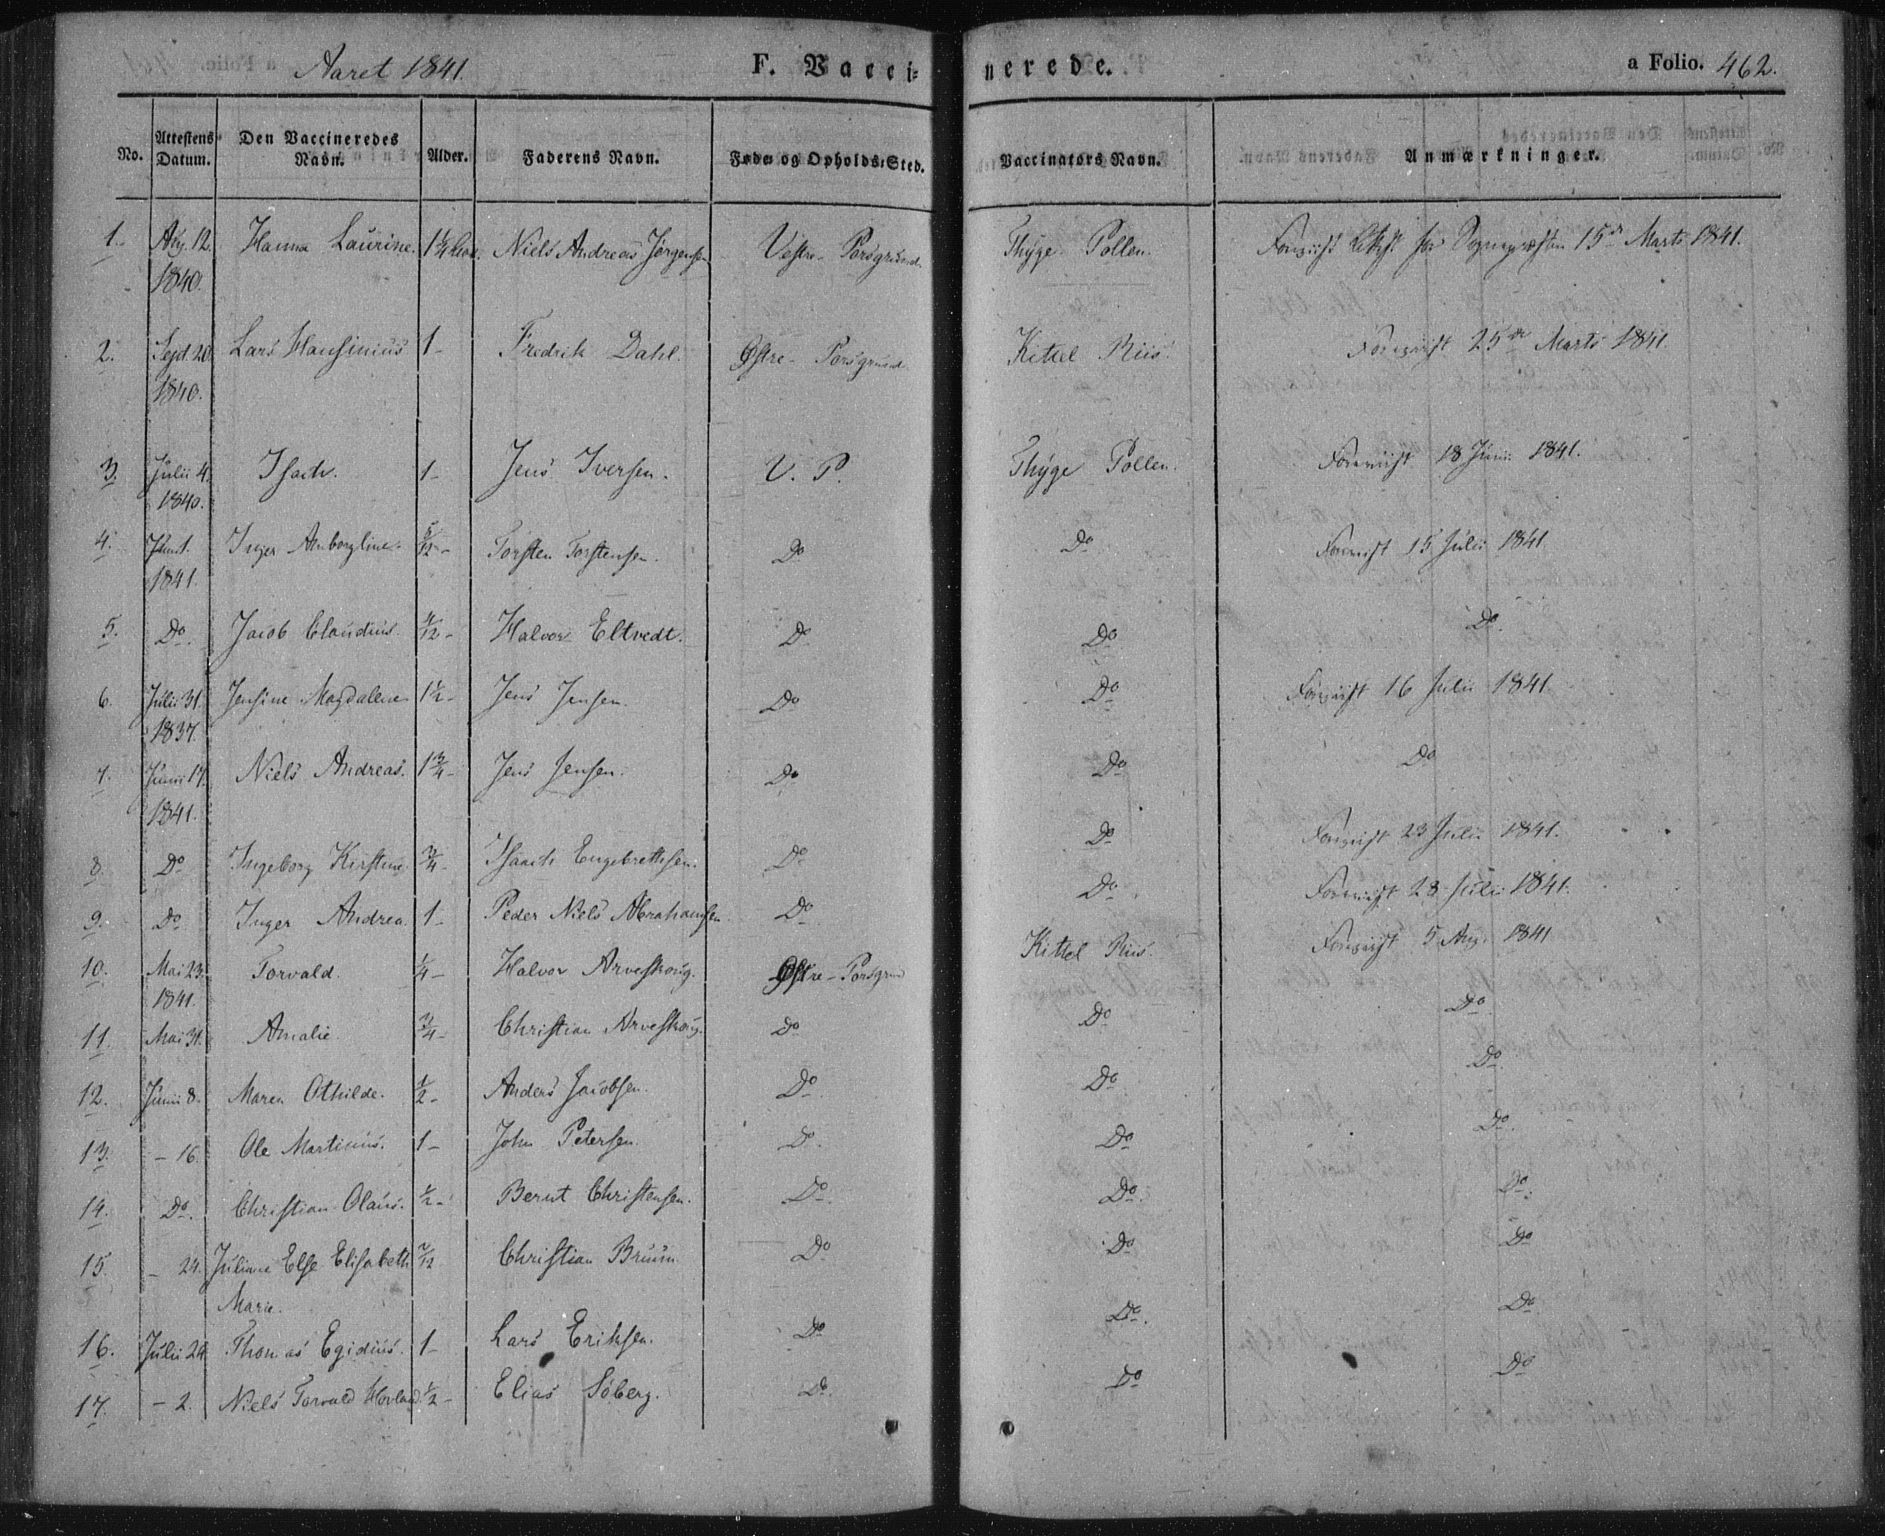 Aaret 1841. F. Vaccinerede. a Folio. 462.
No. Attestens Datum. Den Vaccineredes Navn. Alder. Faderens Navn. Føde- og Opholds-Sted. Vaccinators Navn. Anmærkninger.
1. Aug. 12. 1840. Hanna Laurine. 1 1/4 Niels Andreas Jørgensen Vestre-Porsgrund. Thÿge Pollen. Foreviist 15de Marts 1841.
2. Septb. 20. 1840. Lars Hansinius 1- Fredrik Dahl. Østre-Porsgrund. Kittel Riis. Foreviist 25de Marts 1841.
3. Julii 4. 1840. Isach. 1- Jens Iversen. V. P. Thÿge Pollen. Foreviist 18 Junii 1841.
4. 1841. Inger Amborgline. 5/12- Torsten Torstensen. Do Do Foreviist 15 Julii 1841.
5. Do. Jacob Claudius. 4/12- Halvor Eltvedt. Do Do Do.
6. Julii 31. 1837. Jensine Magdalene 1 1/2- Jens Jensen. Do Do Foreviist 16 Julii 1841
7. Junii 17. 1841. Niels Andreas. 1 3/4- Jens Jensen. Do Do Do
8. Do Ingeborg Kirstine 3/4- Isach Engebrethsen. Do Do Foreviist 23 Julii 1841.
9. Do Inger Andrea. 1- Peder Niels Abrahamsen Do Do Foreviist 28 Julii 1841.
10. Mai 23. 1841. Torvald. 1/4- Halvor Arveskoug. Østre-Porsgrund Kittel Riis. Foreviist 5 Aug. 1841
11. Mai 31. Amalie. 3/4- Christian Arveskoug. Do Do Do
12. Junii 8. Maren Othilde. 1/2- Anders Jacobsen. Do Do Do
13. - 16. Ole Martinius. 1- John Petersen. Do. Do Do.
14. Do. Christian Olaus. 1/2- Bernt Christensen. Do Do. Do.
15. - 24. Juliane Else Elisabeth Marie. 7/12 Christian Bruun Do Do Do
16. Julii 24 Thomas Egidius. 1- Lars Eriksen. Do Do. Do
17. - 2. Niels Torvald Hovland. 1/2- Elias Søberg. Do. Do Do